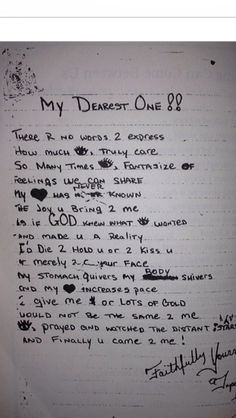 My Dearest One!!
There R no words 2 express
How much 👁, Truly care
So Many Times 👁, Fantasize of
Feelings we can share
My ♥ has never known
The Joy u Bring 2 me
As if GOD knew what 👁 wanted
and made u a Reality
I'd Die 2 Hold u or 2 Kiss u
or merely 2 C your Face
My stomach quivers my BODY shivers
and my ♥ increases pace
2 give me or lots of Gold
would not be the same 2 me
👁, prayed and watched the distant stars
and Finally u came 2 me!
Faithfully Yours